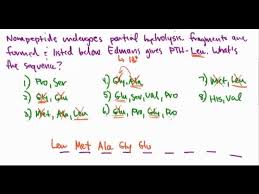 Nonapeptide undergoes partial hydrolysis fragments are
formed & listed below Edmans gives PTH-Leu. What's
the sequence?
↳ 1st
1) Pro, Ser
2) Gly, Glu
3) Met, Ala, Leu
4) Gly, Ala
5) Glu, Ser, Val, Pro
6) Glu, Val, Pro
7) Met, Leu
8) His, Val
Leu Met Ala Gly Glu _ _ _ _